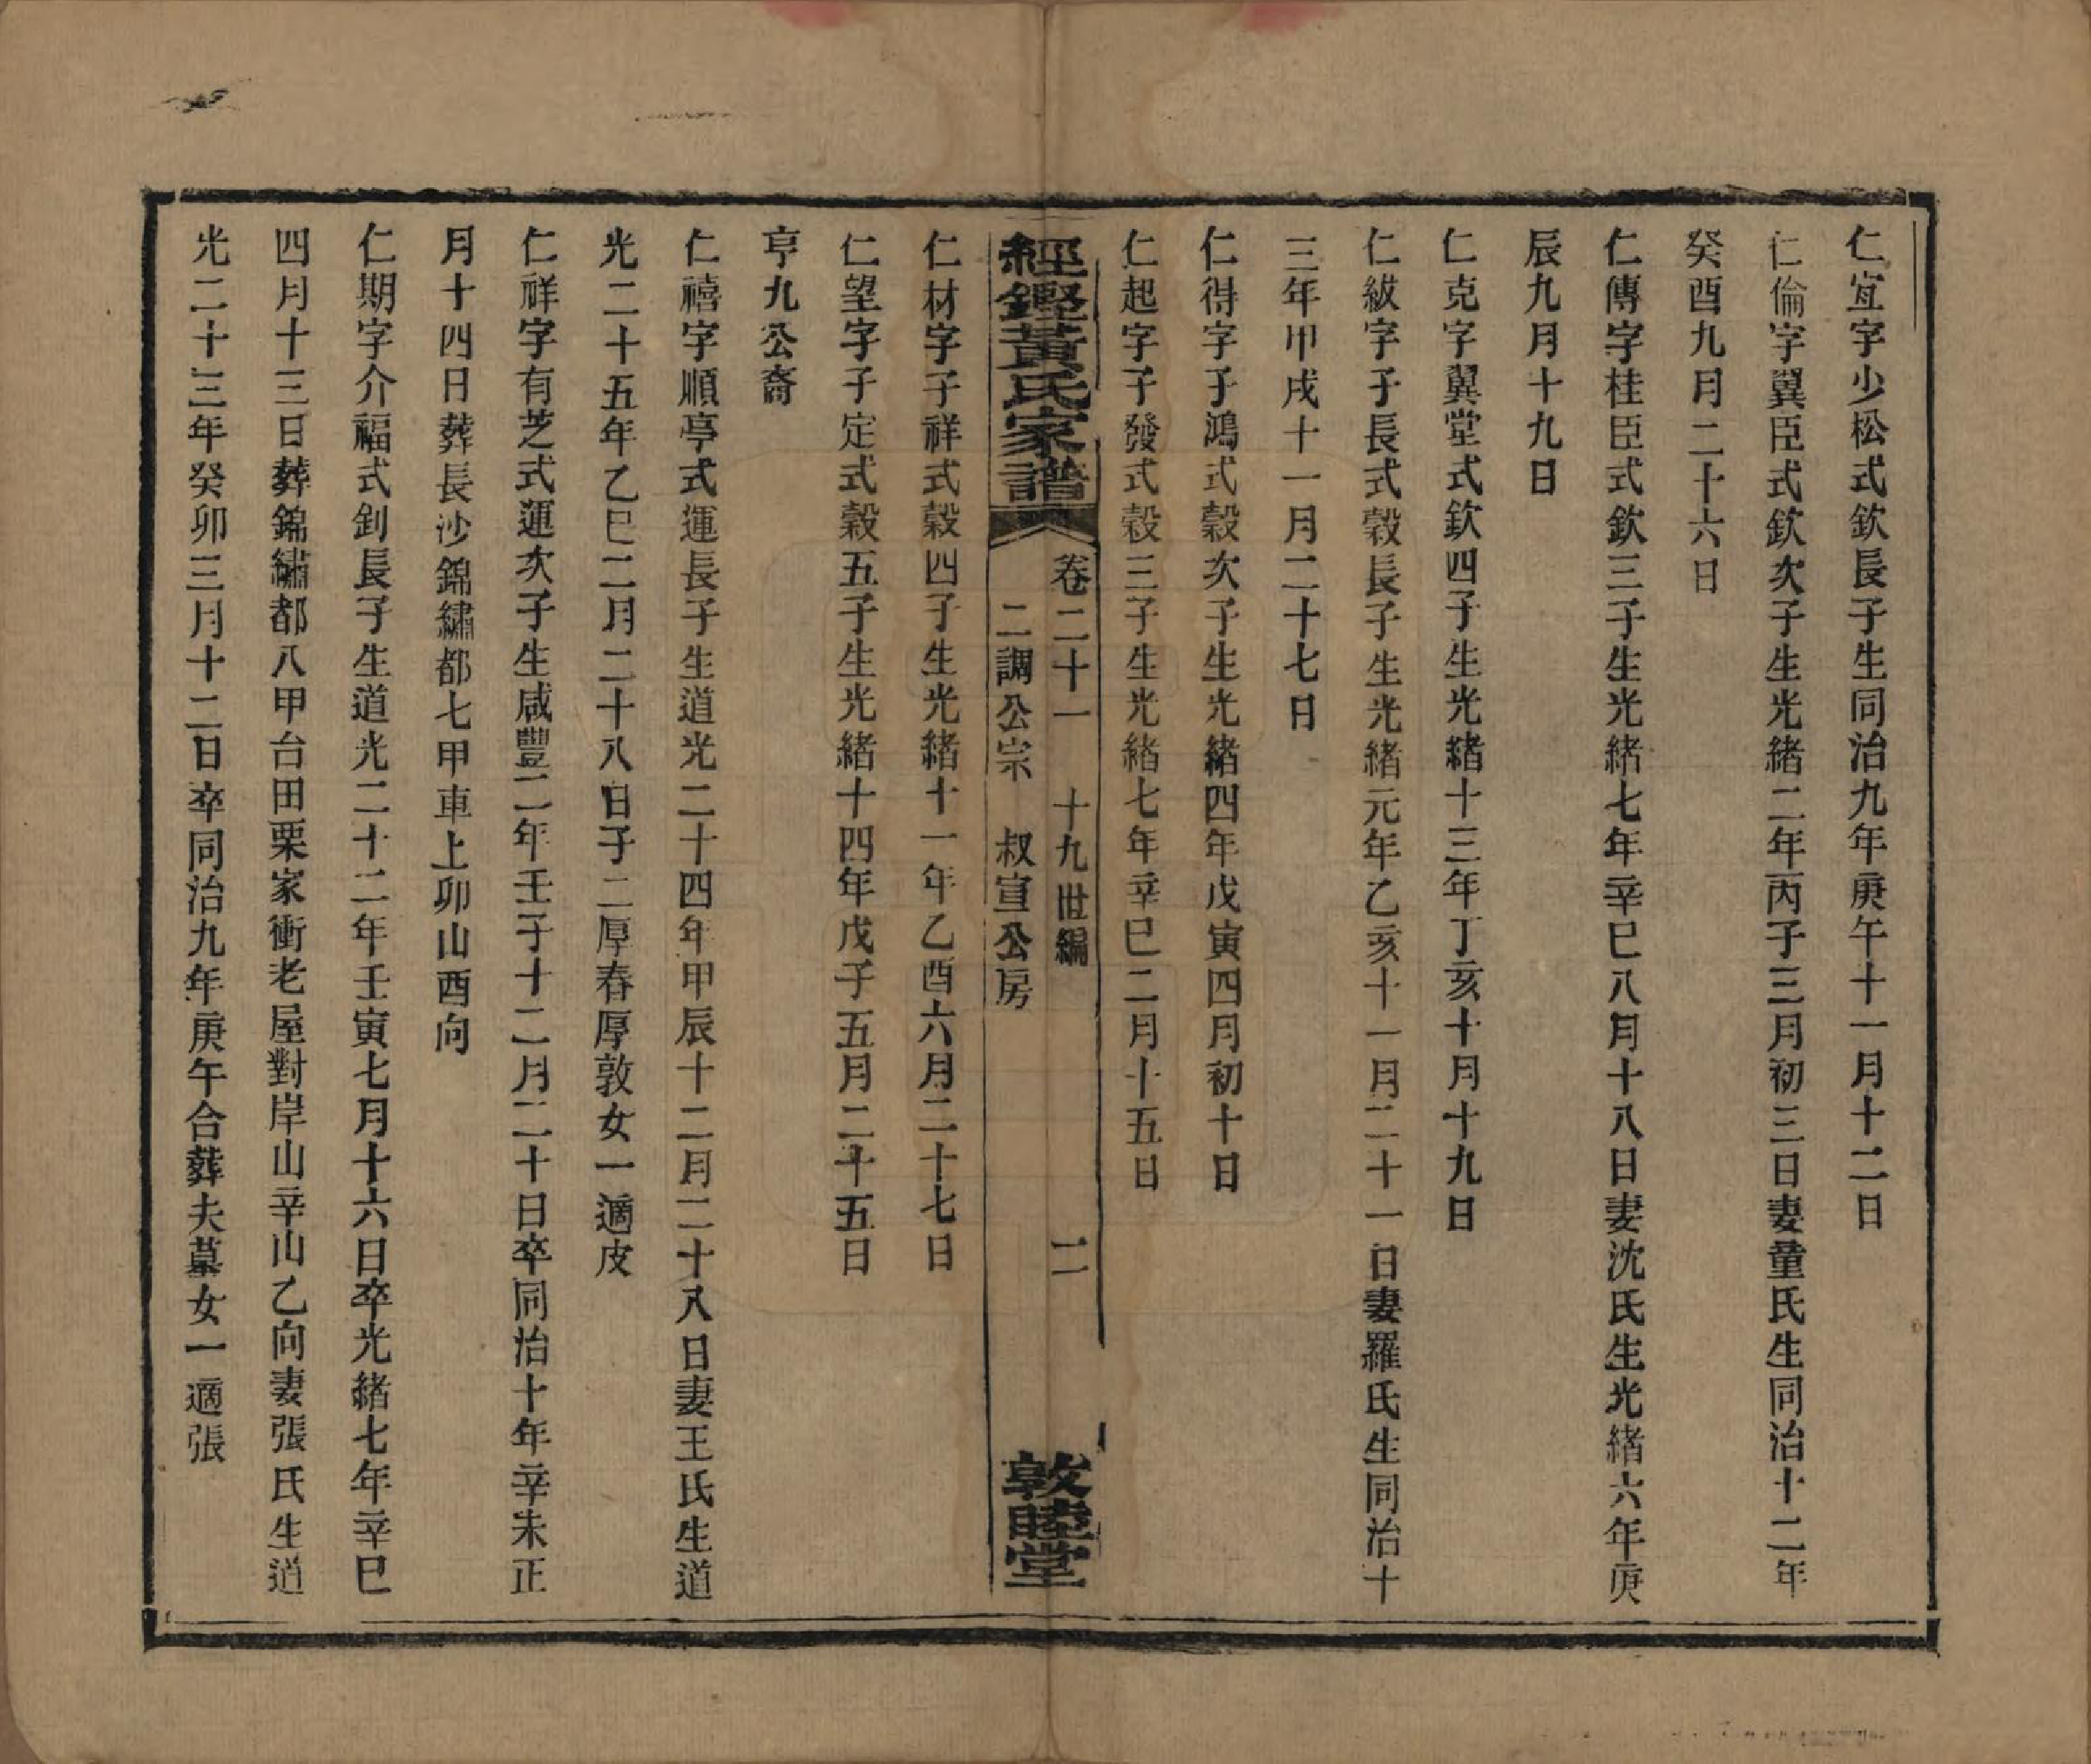 仁宜字少松式欽長子生同治九年庚午十一月十二日
仁倫字翼臣式欽次子生光緒二年丙子三月初三日妻童氏生同治十二年
癸酉九月二十六日
仁傳字桂臣式欽三子生光緒七年辛巳八月十八日妻沈氏生光緒六年庚
辰九月十九日
仁克字翼堂式欽四子生光緒十三年丁亥十月十九日
仁紱字子長式穀長子生光緒元年乙亥十一月二十一日妻羅氏生同治十
三年甲戌十一月二十七日
仁得字子鴻式穀次子生光緒四年戊寅四月初十日
仁起字子發式穀三子生光緒七年辛巳二月十五日
經鏗黃氏家譜
卷二十一 十九世編 二
二調公宗 叔宣公房
敦睦堂
仁材字子祥式穀四子生光緒十一年乙酉六月二十七日
仁望字子定式穀五子生光緒十四年戊子五月二十五日
亨九公裔
仁禧字順亭式運長子生道光二十四年甲辰十二月二十八日妻王氏生道
光二十五年乙巳二月二十八日子二厚春厚敦女一適皮
仁祥字有芝式運次子生咸豐二年壬子十二月二十日卒同治十年辛未正
月十四日葬長沙錦繡都七甲車上卯山酉向
仁期字介福式釗長子生道光二十二年壬寅七月十六日卒光緒七年辛巳
四月十三日葬錦繡都八甲台田栗家衝老屋對岸山辛山乙向妻張氏生道
光二十三年癸卯三月十二日卒同治九年庚午合葬夫墓女一適張